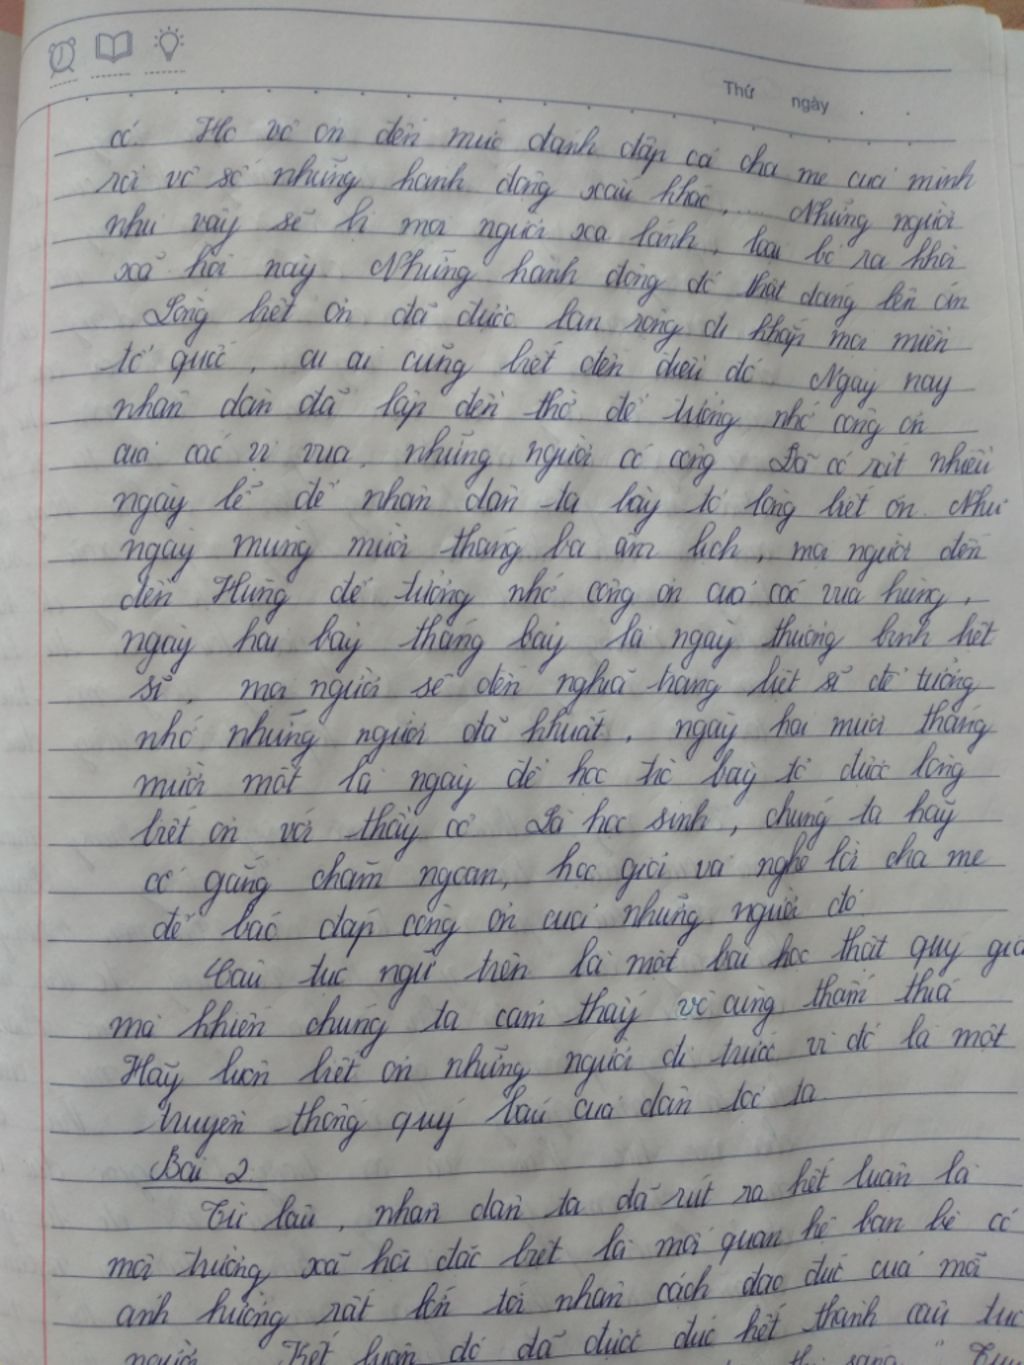 Thứ ngày
có. Họ vô ơn đến mức đánh đập cả cha mẹ của mình
rồi vô số những hành động xấu khác,... Những người
như vậy sẽ bị mọi người xa lánh, loại bỏ ra khỏi
xã hội này. Những hành động đó thật đáng lên án
Lòng biết ơn đã được lan rộng đi khắp mọi miền
tổ quốc, ai ai cũng biết đến điều đó. Ngày nay
nhân dân đã lập đền thờ để tưởng nhớ công ơn
của các vị vua, những người có công. Đã có rất nhiều
ngày lễ để nhân dân ta bày tỏ lòng biết ơn. Như
ngày mùng mười tháng ba âm lịch, mọi người đến
đền Hùng để tưởng nhớ công ơn của các vua hùng,
ngày hai bảy tháng bảy là ngày thương binh liệt
sĩ, mọi người sẽ đến nghĩa trang liệt sĩ để tưởng
nhớ những người đã khuất, ngày hai mươi tháng
mười một là ngày để học trò bày tỏ được lòng
biết ơn với thầy cô. Là học sinh, chúng ta hãy
cố gắng chăm ngoan, học giỏi và nghe lời cha mẹ
để báo đáp công ơn của những người đó.
Câu tục ngữ trên là một bài học thật quý giá
mà khiến chúng ta cảm thấy vô cùng thấm thía
Hãy luôn biết ơn những người đi trước vì đó là một
truyền thống quý báu của dân tộc ta.
Bài 2
Từ lâu, nhân dân ta đã rút ra kết luận là
môi trường xã hội đặc biệt là mối quan hệ bạn bè có
ảnh hưởng rất lớn tới nhân cách đạo đức của mỗi
người. Kết luận đó đã được đúc kết thành câu tục